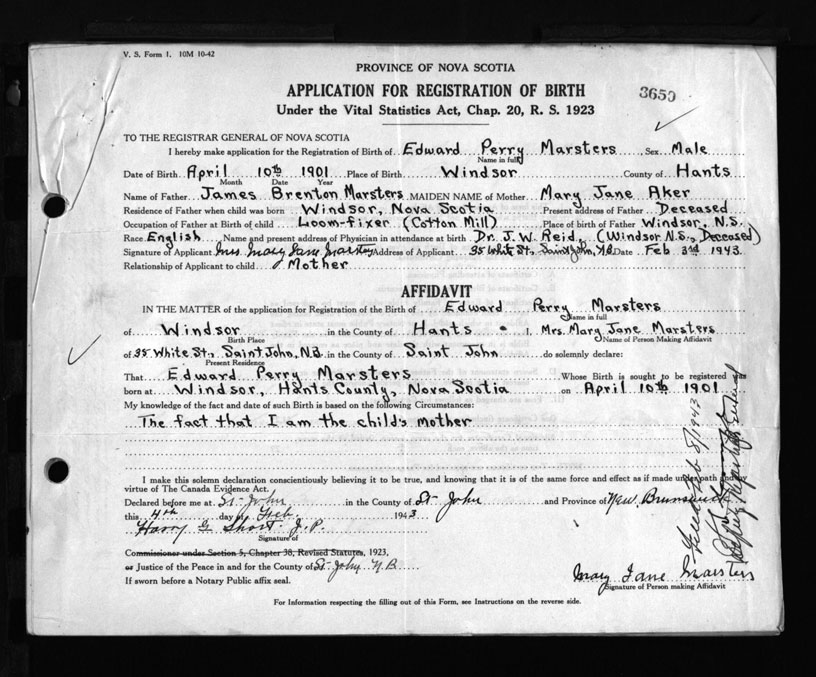 V. S. Form 1. 10M 10-42
PROVINCE OF NOVA SCOTIA
APPLICATION FOR REGISTRATION OF BIRTH
3650
Under the Vital Statistics Act, Chap. 20, R. S. 1923
TO THE REGISTRAR GENERAL OF NOVA SCOTIA
I hereby make application for the Registration of Birth of Edward Perry Marsters Sex Male
Name in full
Date of Birth April 10th 1901 Place of Birth Windsor County of Hants
Month Date Year
Name of Father James Brenton Marsters MAIDEN NAME of Mother Mary Jane Aker
Residence of Father when child was born Windsor, Nova Scotia Present address of Father Deceased
Occupation of Father at Birth of child Loom-fixer (Cotton Mill) Place of birth of Father Windsor, N.S.
Race English Name and present address of Physician in attendance at birth Dr. J. W. Reid, (Windsor N.S., Deceased)
Signature of Applicant Mrs. Mary Jane Marsters Address of Applicant 35 White St., Saint John, N.B. Date Feb 3rd 1943.
Relationship of Applicant to child Mother
AFFIDAVIT
IN THE MATTER of the application for Registration of the Birth of Edward Perry Marsters
Name in full
of Windsor in the County of Hants I, Mrs. Mary Jane Marsters
Birth Place Name of Person Making Affidavit
of 35 White St., Saint John, N.B. in the County of Saint John do solemnly declare:
Present Residence
That Edward Perry Marsters Whose Birth is sought to be registered was
born at Windsor, Hants County, Nova Scotia on April 10th 1901
My knowledge of the fact and date of such Birth is based on the following Circumstances:
The fact that I am the child's mother
I make this solemn declaration conscientiously believing it to be true, and knowing that it is of the same force and effect as if made under oath and
virtue of The Canada Evidence Act.
Declared before me at St. John in the County of St. John and Province of New Brunswick
this 4th day of Feb. 1943
Harry G Short J.P.
Signature of
Commissioner under Section 5, Chapter 38, Revised Statutes, 1923,
or Justice of the Peace in and for the County of St. John N.B.
If sworn before a Notary Public affix seal.
Mary Jane Marsters
Signature of Person making Affidavit
For Information respecting the filling out of this Form, see Instructions on the reverse side.
Feb 8/1943
Deputy Registrar General